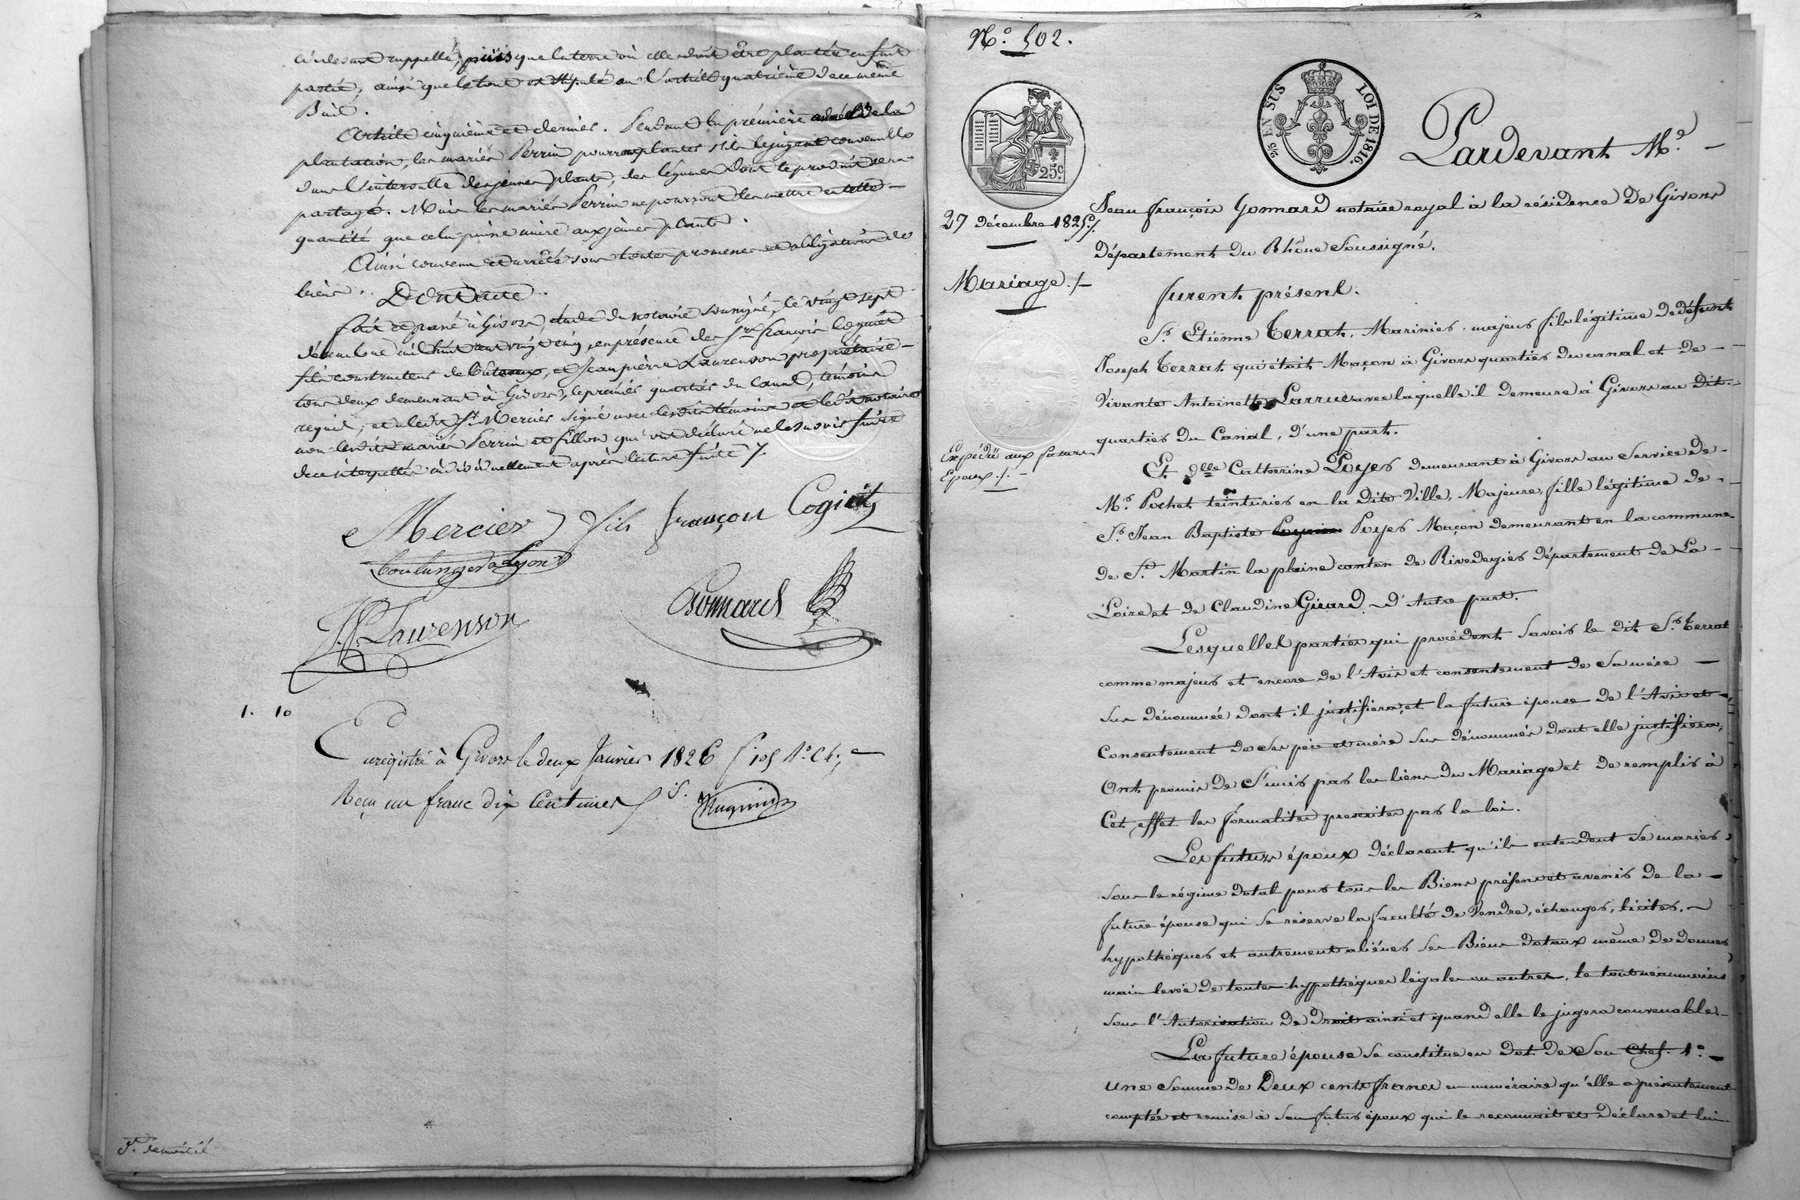 ci-dessus rappellé, puisque la terre où elle doit être plantée en fait
partie, ainsi que le tout est stipulé en l'article quatrième de ce même
Bail.
Article cinquième et dernier. Pendant la première année de la
plantation, les mariés Perrin pourront planter s'ils le jugent convenable
dans l'intervalle des jeunes plants, des légumes dont le produit sera
partagé. Mais les mariés Perrin ne pourront les mettre en telle
quantité que cela puisse nuire aux jeunes plants.
Ainsi convenu et arrêté sous toutes promesses et obligations de
biens. Dont Acte.
fait et passé à Givors, étude du notaire soussigné, le vingt sept
décembre mil huit cent vingt cinq, en présence des Srs françois Cogniet
fils constructeur de bateaux, et Jean pierre Laurenson propriétaire
tous deux demeurant à Givors, le premier quartier du Canal, témoins
requis, et a le dit Sr. Mercier signé avec les dits témoins et le dit notaire
non les dits mariés Perrin et fillon qui ont déclaré ne le savoir faire
de ce interpellés individuellement après lecture faite /.
Mercier fils françois Cogniet
boulanger à Lyon
JP Laurenson
Gonnard
1. 10
Enregistré à Givors le deux Janvier 1826 f° 105 R° C.
Reçu un franc dix Centimes
N° 502.
25c.
5c EN SUS
LOI DE 1816.
Pardevant Me.
27 décembre 1825 /.
Jean françois Gonnard notaire royal à la résidence de Givors
département du Rhône soussigné.
Mariage ./.
furent présent.
Sr. Etienne Terrat, Marinier, majeur fils légitime de défunt
Joseph Terrat qui était Maçon à Givors quartier du canal et de
Vivante Antoinette Larrue avec laquelle il demeure à Givors au dit
quartier du Canal, d'une part.
Expédié aux futurs
Epoux ./.
Et Dlle Catherine Poyes demeurant à Givors au Service de
Mr. Pochet teinturier en la dite Ville, Majeure, fille légitime de
Sr. Jean Baptiste Poyes Maçon demeurant en la commune
de St. Martin la plaine canton de Rivedegier département de La
Loire et de Claudine Girard, d'Autre part.
Lesquelles parties qui procèdent Savoir le dit Sr. Terrat
comme majeur et encore de l'Avis et consentement de Sa mère
Sus dénommée dont il justifiera, et la future épouse de l'Avis et
Consentement de Ses père et mère Sus dénommés dont elle justifiera,
Ont promis de S'unir par les liens du Mariage et de remplir à
Cet effet les formalités prescrites par la loi.
Les futurs époux déclarent qu'ils entendent Se marier
Sous le régime dotal pour tous les Biens présens et avenir de la
future épouse qui Se réserve la faculté de Vendre, échanger, liciter,
hypothéquer et autrement aliéner Ses Biens dotaux même de donner
main levée de toutes hypothèques légales ou autres, le tout néanmoins
Sous l'Autorisation De Droit ainsi et quand elle le jugera convenable.
La future épouse Se constitue en Dot De Son Chef. 1°
une Somme de Deux cents francs en numéraire qu'elle a présentement
comptée et remise à Son futur époux qui le reconnait et Déclare et lui